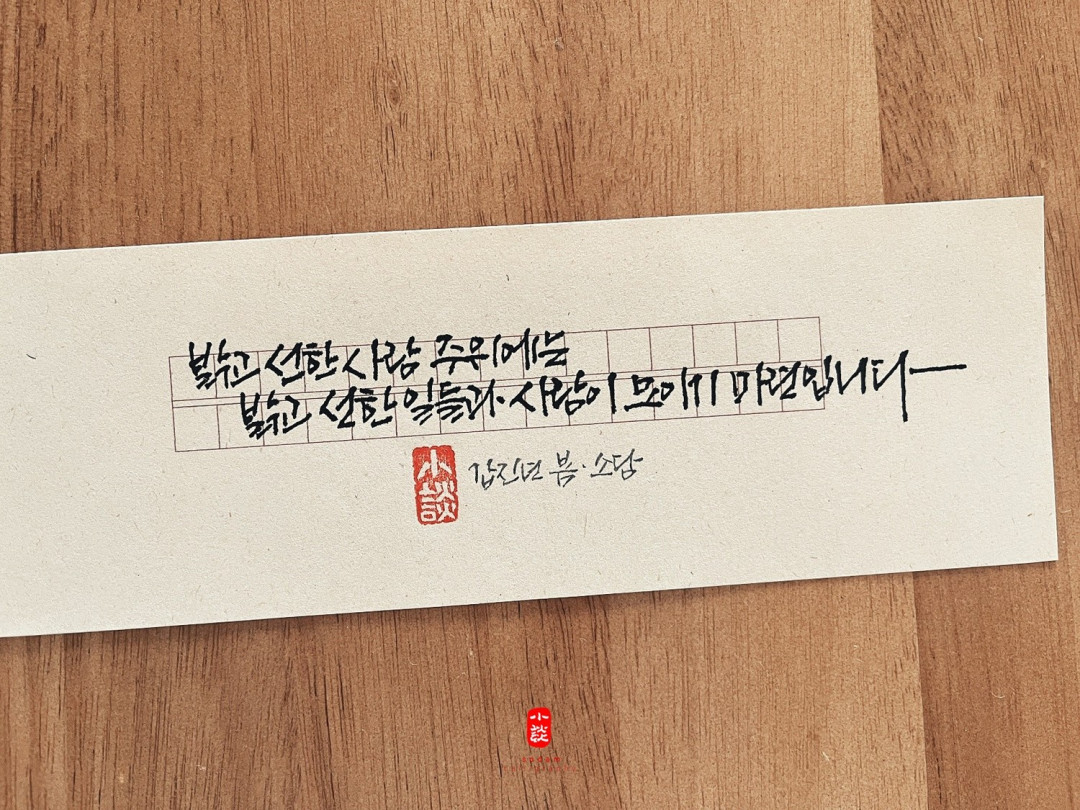 밝고 선한 사람 주위에는
밝고 선한 일들과 · 사람이 모이기 마련입니다
小談
갑진년 봄 · 소담
小談
sodam